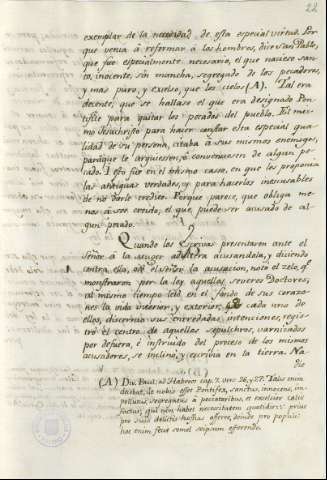 22
exemplar de la necesidad de esta especial virtud. Por
que venia à reformar à los hombres, dice San Pablo,
que fue especialmente necesario, el que naciese san-
to, inocente, sin mancha, segregado de los pecadores,
y mas puro, y excelso, que los cielos (A). Tal era
decente, que se hallase el que era designado Pon-
tifice para quitar los pecados del pueblo. El mis-
mo Jesuchristo para hacer constar esta especial qua-
lidad de su persona, citaba à sus mismos enemigos,
paraque le arguiesen, ò convenciesen de algun pe-
cado. I esto fue en el mismo caso, en que les proponia
las antiguas verdades, y para hacerlos inexcusables
de no darle credito. Porque parece, que obliga me-
nos à ser creido, el que puede ser acusado de al-
gun pecado.
Quando los Escrivas presentaron ante el
Señor à la muger adultera acusandola, y diciendo
contra ella, oyò el Señor la acusacion, notò el zelo, q.e
mostraron por la ley aquellos severos Doctores,
al mismo tiempo leiò en el fondo de sus corazo-
nes la vida interior, y exterior, de cada uno de
ellos, discernia sus enredadas intenciones, regis-
trò el centro de aquellos sepulchros, varnizados
por defuera, è instruido del proceso de los mismos
acusadores, se inclinò, y escrivia en la tierra. Na-
die
(A) Div. Paul. ad Hebreos cap. 7. vers. 26, y 27. Talis enim
decebat, ut nobis esset Pontifex, sanctus, innocens, im-
pollutus, segregatus à peccatoribus, et excelsior celis
factus, qui non habet necesitatem quotidie prius
pro suis delictis hostias offerre, deinde pro populi:
hoc enim fecit semel seipsum offerendo.